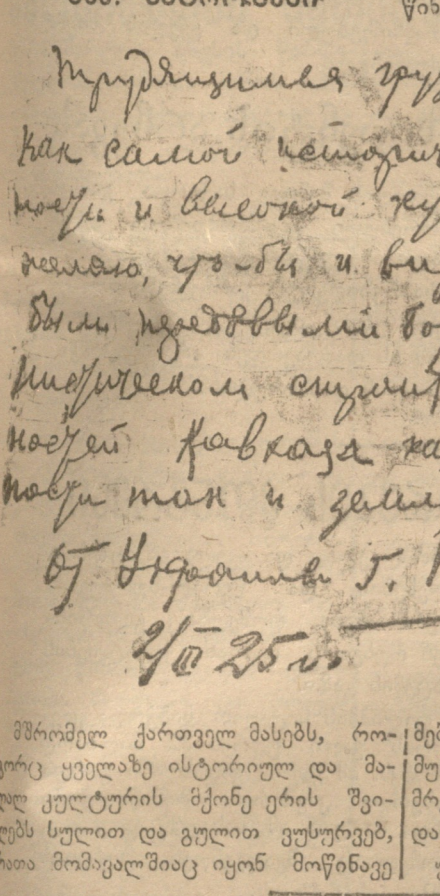 Трудящимся гру
как самой историч
ности и высокой ку
желаю, что-бы и в
были передовыми бо
нистическом строит
ностей Кавказа ка
ности так и земл
от Украины Г.
2/III 25 г.
მშრომელ ქართველ მასებს, რო-
გორც ყველაზე ისტორიულ და მა-
ღალ კულტურის მქონე ერის შვი-
ლებს სულით და გულით ვუსურვებ,
რათა მომავალშიაც იყონ მოწინავე